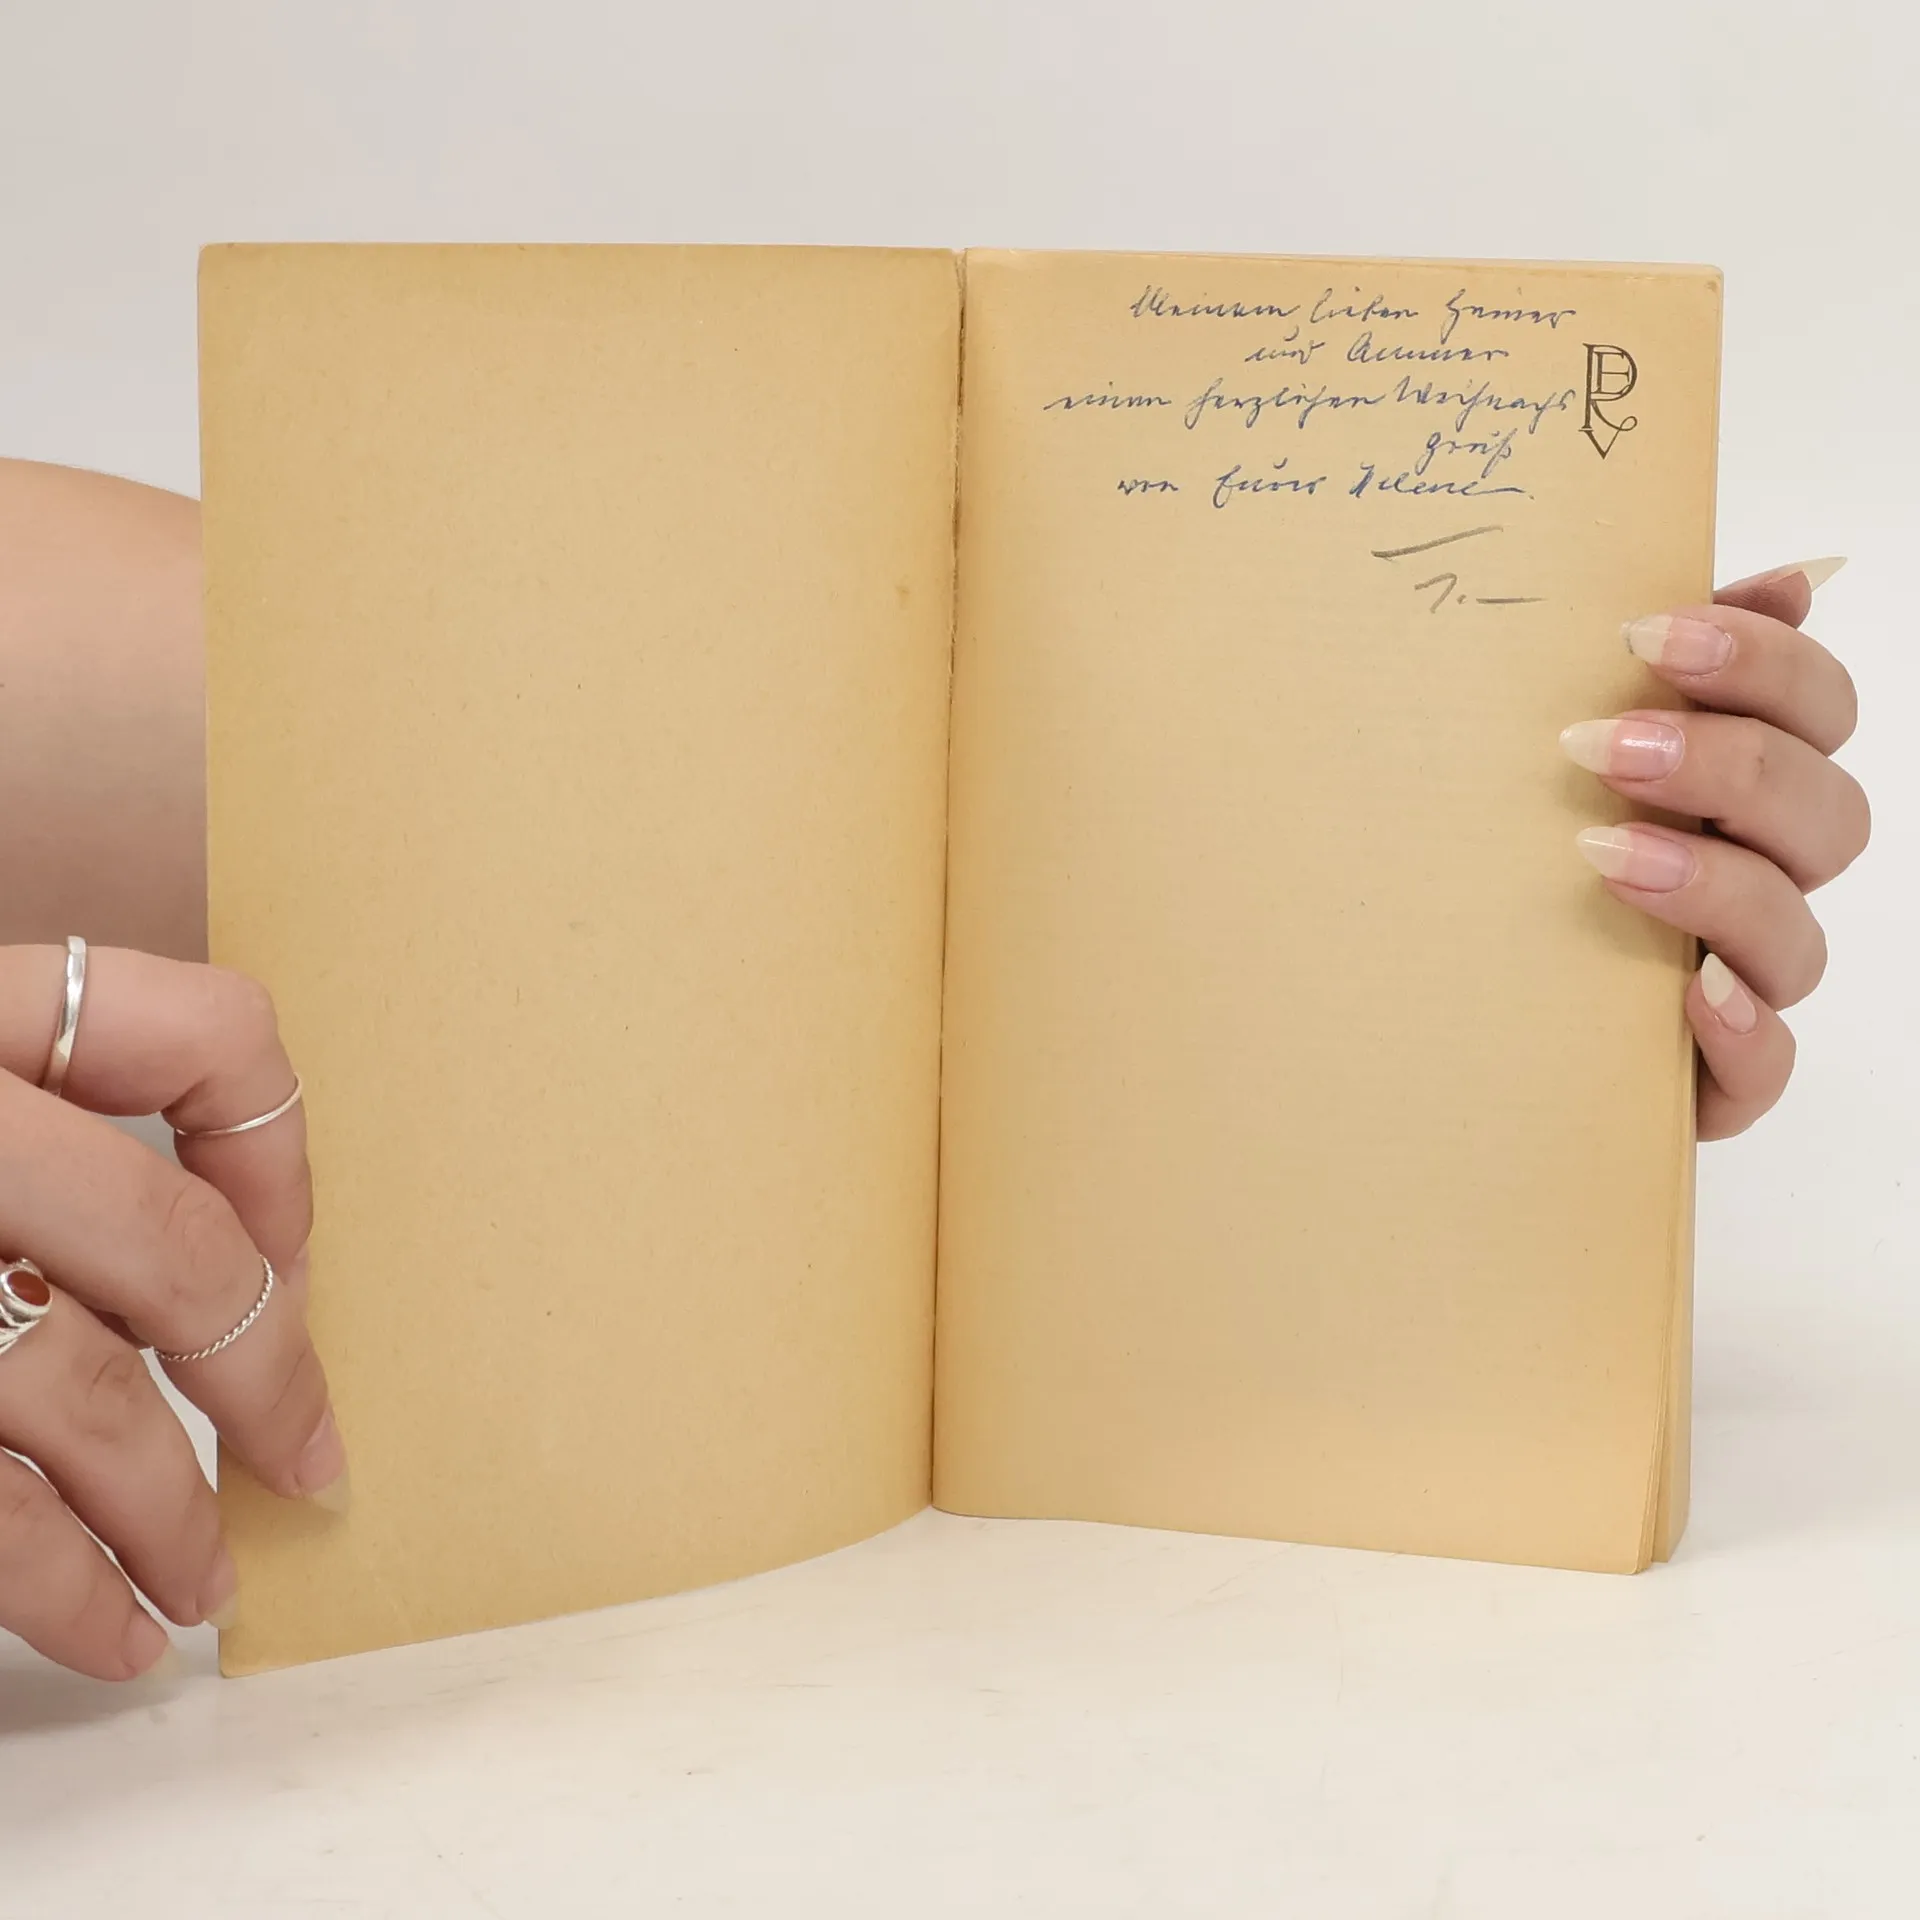 Meinem lieben Heiner
und Ammer
einen herzlichen Weihnachts
gruß
von Eurer Helene.
1.—